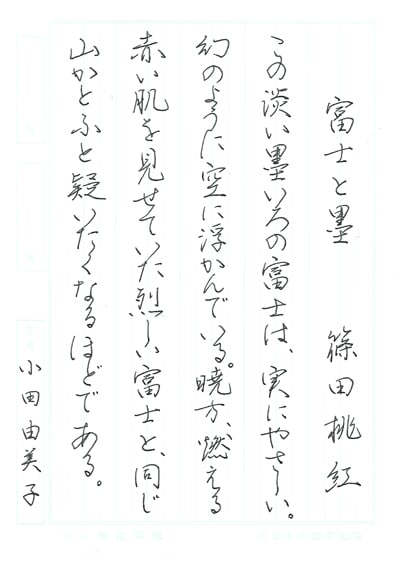 富士と墨　篠田桃紅
この淡い墨いろの富士は、実にやさしい。
幻のように空に浮かんでいる。暁方、燃える
赤い肌を見せていた烈しい富士と、同じ
山かとふと疑いたくなるほどである。
小田由美子